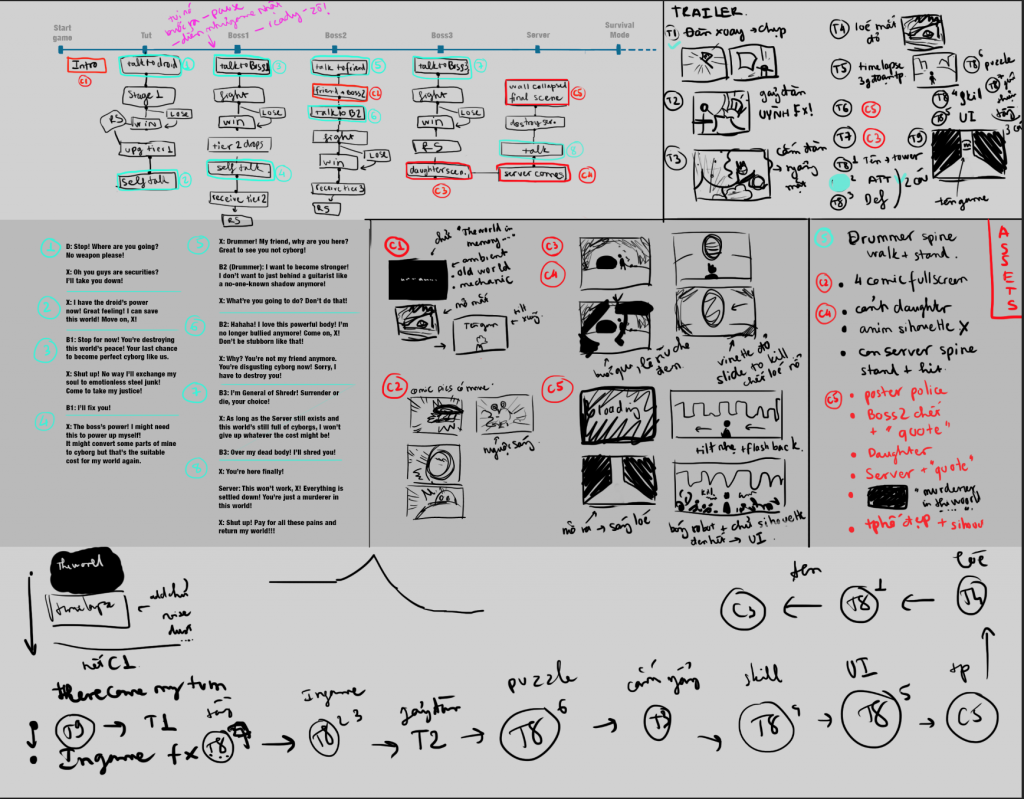 Start
game
Tut
Boss1
Boss2
Boss3
Server
Survival
Mode
Intro
C1
talk to droid
1
Stage 1
LOSE
win
RS
upg tier 1
self talk
2
talk to Boss1
3
fight
LOSE
win
tier 2 drops
self talk
4
receive tier 2
RS
talk to friend
5
friend → boss2
C2
talk to B2
6
fight
LOSE
win
receive tier 3
RS
talk to Boss3
7
fight
LOSE
win
RS
daughter scene.
C3
server comes
C4
wall collapsed
final scene
C5
talk
8
TRAILER.
T1 Đàn xoay → chụp
T2
gảy đàn
T3
cắm đàn
T4 loé mắt
đỏ
T5 timelapse
T6 C5
T7 C3
T8 1 Tên + tower
2 ATT
T8 3 Def
T8 4 skill
T8 5 UI
T8 6 puzzle
T9
tên game
1
D: Stop! Where are you going?
No weapon please!
X: Oh you guys are securities?
I'll take you down!
2
X: I have the droid's power
now! Great feeling! I can save
this world! Move on, X!
3
B1: Stop for now! You're destroying
this world's peace! Your last chance
to become perfect cyborg like us.
X: Shut up! No way I'll exchange my
soul to emotionless steel junk!
Come to take my justice!
B1: I'll fix you!
4
X: The boss's power! I might need
this to power up myself!
It might convert some parts of mine
to cyborg but that's the suitable
cost for my world again.
5
X: Drummer! My friend, why are you here?
Great to see you not cyborg!
B2 (Drummer): I want to become stronger!
I don't want to just behind a guitarist like
a no-one-known shadow anymore!
X: What're you going to do? Don't do that!
6
B2: Hahaha! I love this powerful body! I'm
no longer bullied anymore! Come on, X!
Don't be stubborn like that!
X: Why? You're not my friend anymore.
You're disgusting cyborg now! Sorry, I
have to destroy you!
7
B3: I'm General of Shredr! Surrender or
die, your choice!
X: As long as the Server still exists and
this world's still full of cyborgs, I won't
give up whatever the cost might be!
B3: Over my dead body! I'll shred you!
8
X: You're here finally!
Server: This won't work, X! Everything is
settled down! You're just a murderer in
this world!
X: Shut up! Pay for all these pains and
return my world!!!
C1
chữ "The world in
memory..."
ambient
old world
mechanic
mở mắt
Tên game
tilt
xuống
C2
comic pics có move.
người sáng
C3
C4
vinette đỏ
slide to kill
C5
loading
tilt nhẹ + flash back.
mở ra → sáng loé
bóng robot + chữ sihouette
đen hết → UI
ASSETS
Drummer spine
walk + stand.
C2 • 4 comic fullscreen
C4 • cảnh daughter
• anim sihouette X
• con server spine
stand + hit.
C5 • poster police
• Boss2 chết
+ "quote"
• Daughter
• Server + "quote"
• "murderer
in the world
• tphố đẹp + sihou
The world
timelapse
hết C1
there come my turn
T9 → T1
Ingame fx T8
Ingame
T8 2 3
gảy đàn
T2
puzzle
T8 6
T3
skill
T8 4
UI
T8 5
tp
C5
loé
T4
T8 1
tên
C3